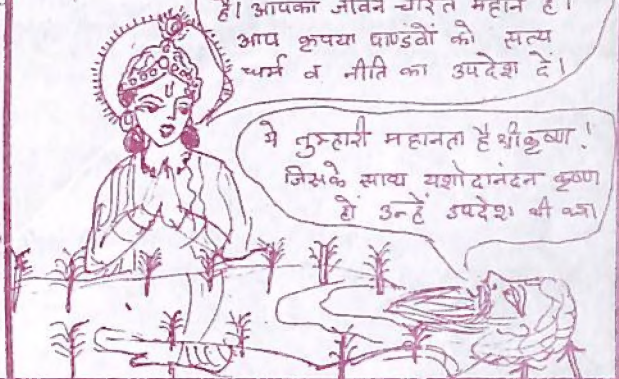 है। आपका जीवन चरित महान है।
आप कृपया पाण्डंवों को सत्य
धर्म व नीति का उपदेश दें।
ये तुम्हारी महानता है श्रीकृष्ण!
जिसके साथ यशोदानंदन कृष्ण
हों उन्हें उपदेश की क्या